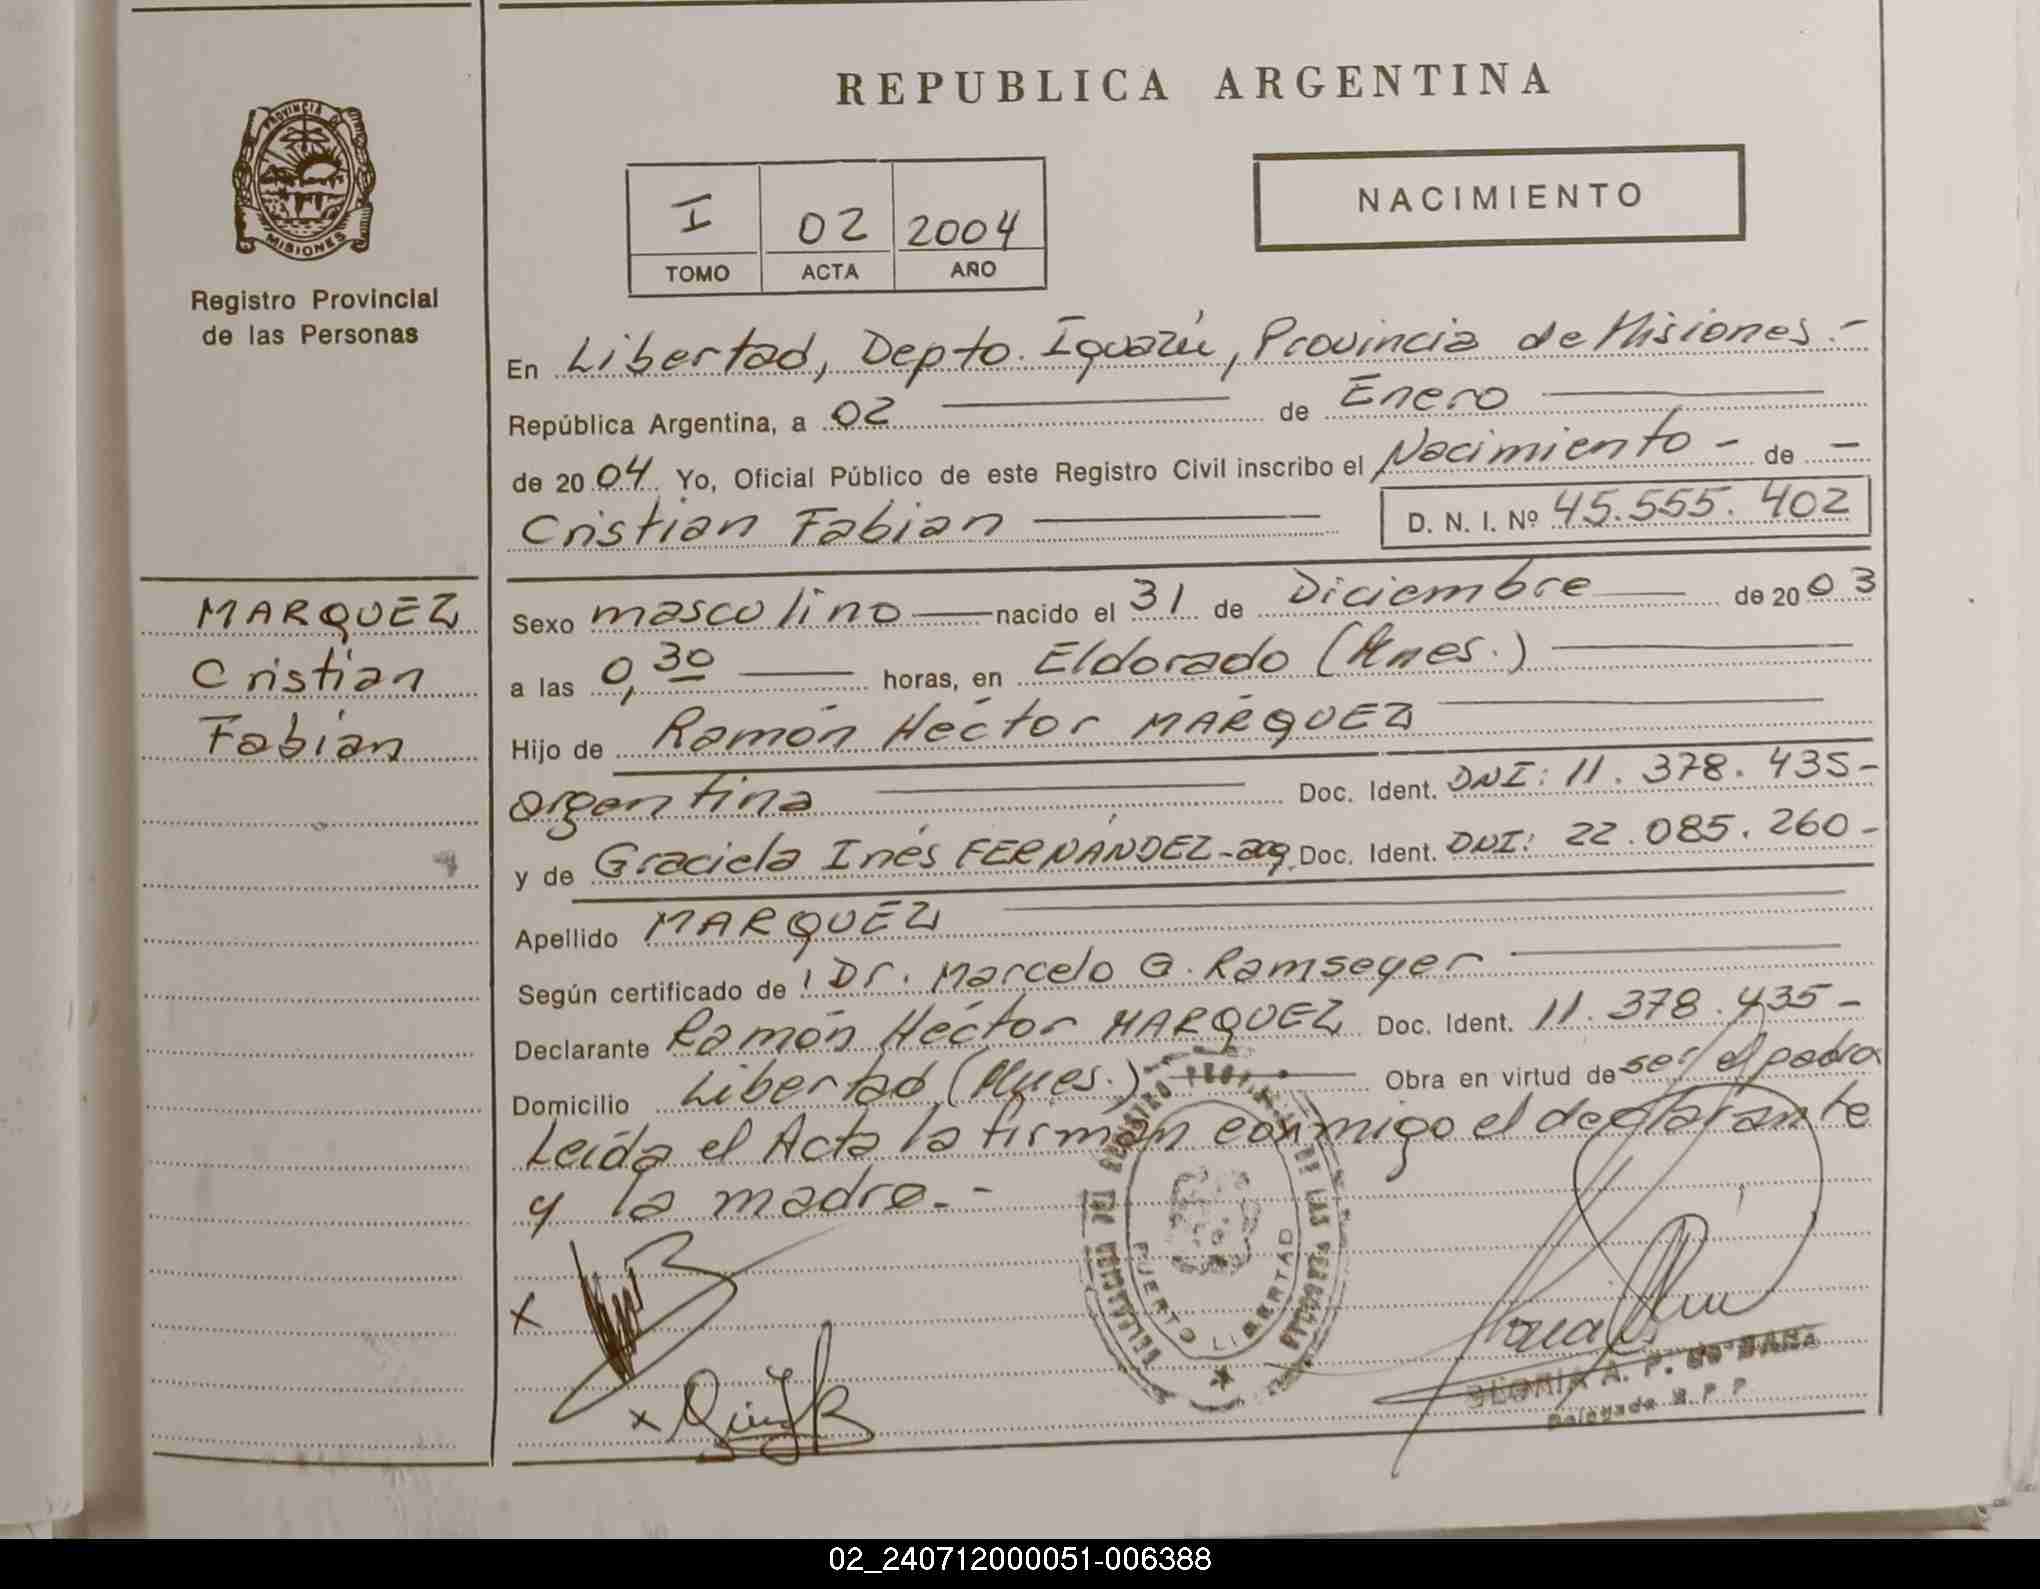 REPUBLICA ARGENTINA
PROVINCIA DE
MISIONES
Registro Provincial
de las Personas
I 02 2004
TOMO ACTA AÑO
NACIMIENTO
En Libertad, Depto. Iguazú, Provincia de Misiones.-
República Argentina, a 02 de Enero
de 2004 Yo, Oficial Público de este Registro Civil inscribo el Nacimiento - de -
Cristian Fabian D. N. I. Nº 45.555.402
MARQUEZ
Cristian
Fabian
Sexo masculino nacido el 31 de Diciembre de 2003
a las 0,30 horas, en Eldorado (Mnes.)
Hijo de Ramón Héctor MÁRQUEZ
argentina Doc. Ident. DNI: 11.378.435-
y de Graciela Inés FERNÁNDEZ-arg. Doc. Ident. DNI: 22.085.260-
Apellido MARQUEZ
Según certificado de Dr. Marcelo G. Ramseyer
Declarante Ramón Héctor MARQUEZ Doc. Ident. 11.378.435-
Domicilio Libertad (Mnes.) Obra en virtud de ser el padre
Leída el Acta la firman conmigo el declarante
y la madre.-
DELEGACION DEL REGISTRO PROVINCIAL DE LAS PERSONAS
PUERTO LIBERTAD
x
x
GLORIA A. P. de
Delegada R. P. P.
02_240712000051-006388